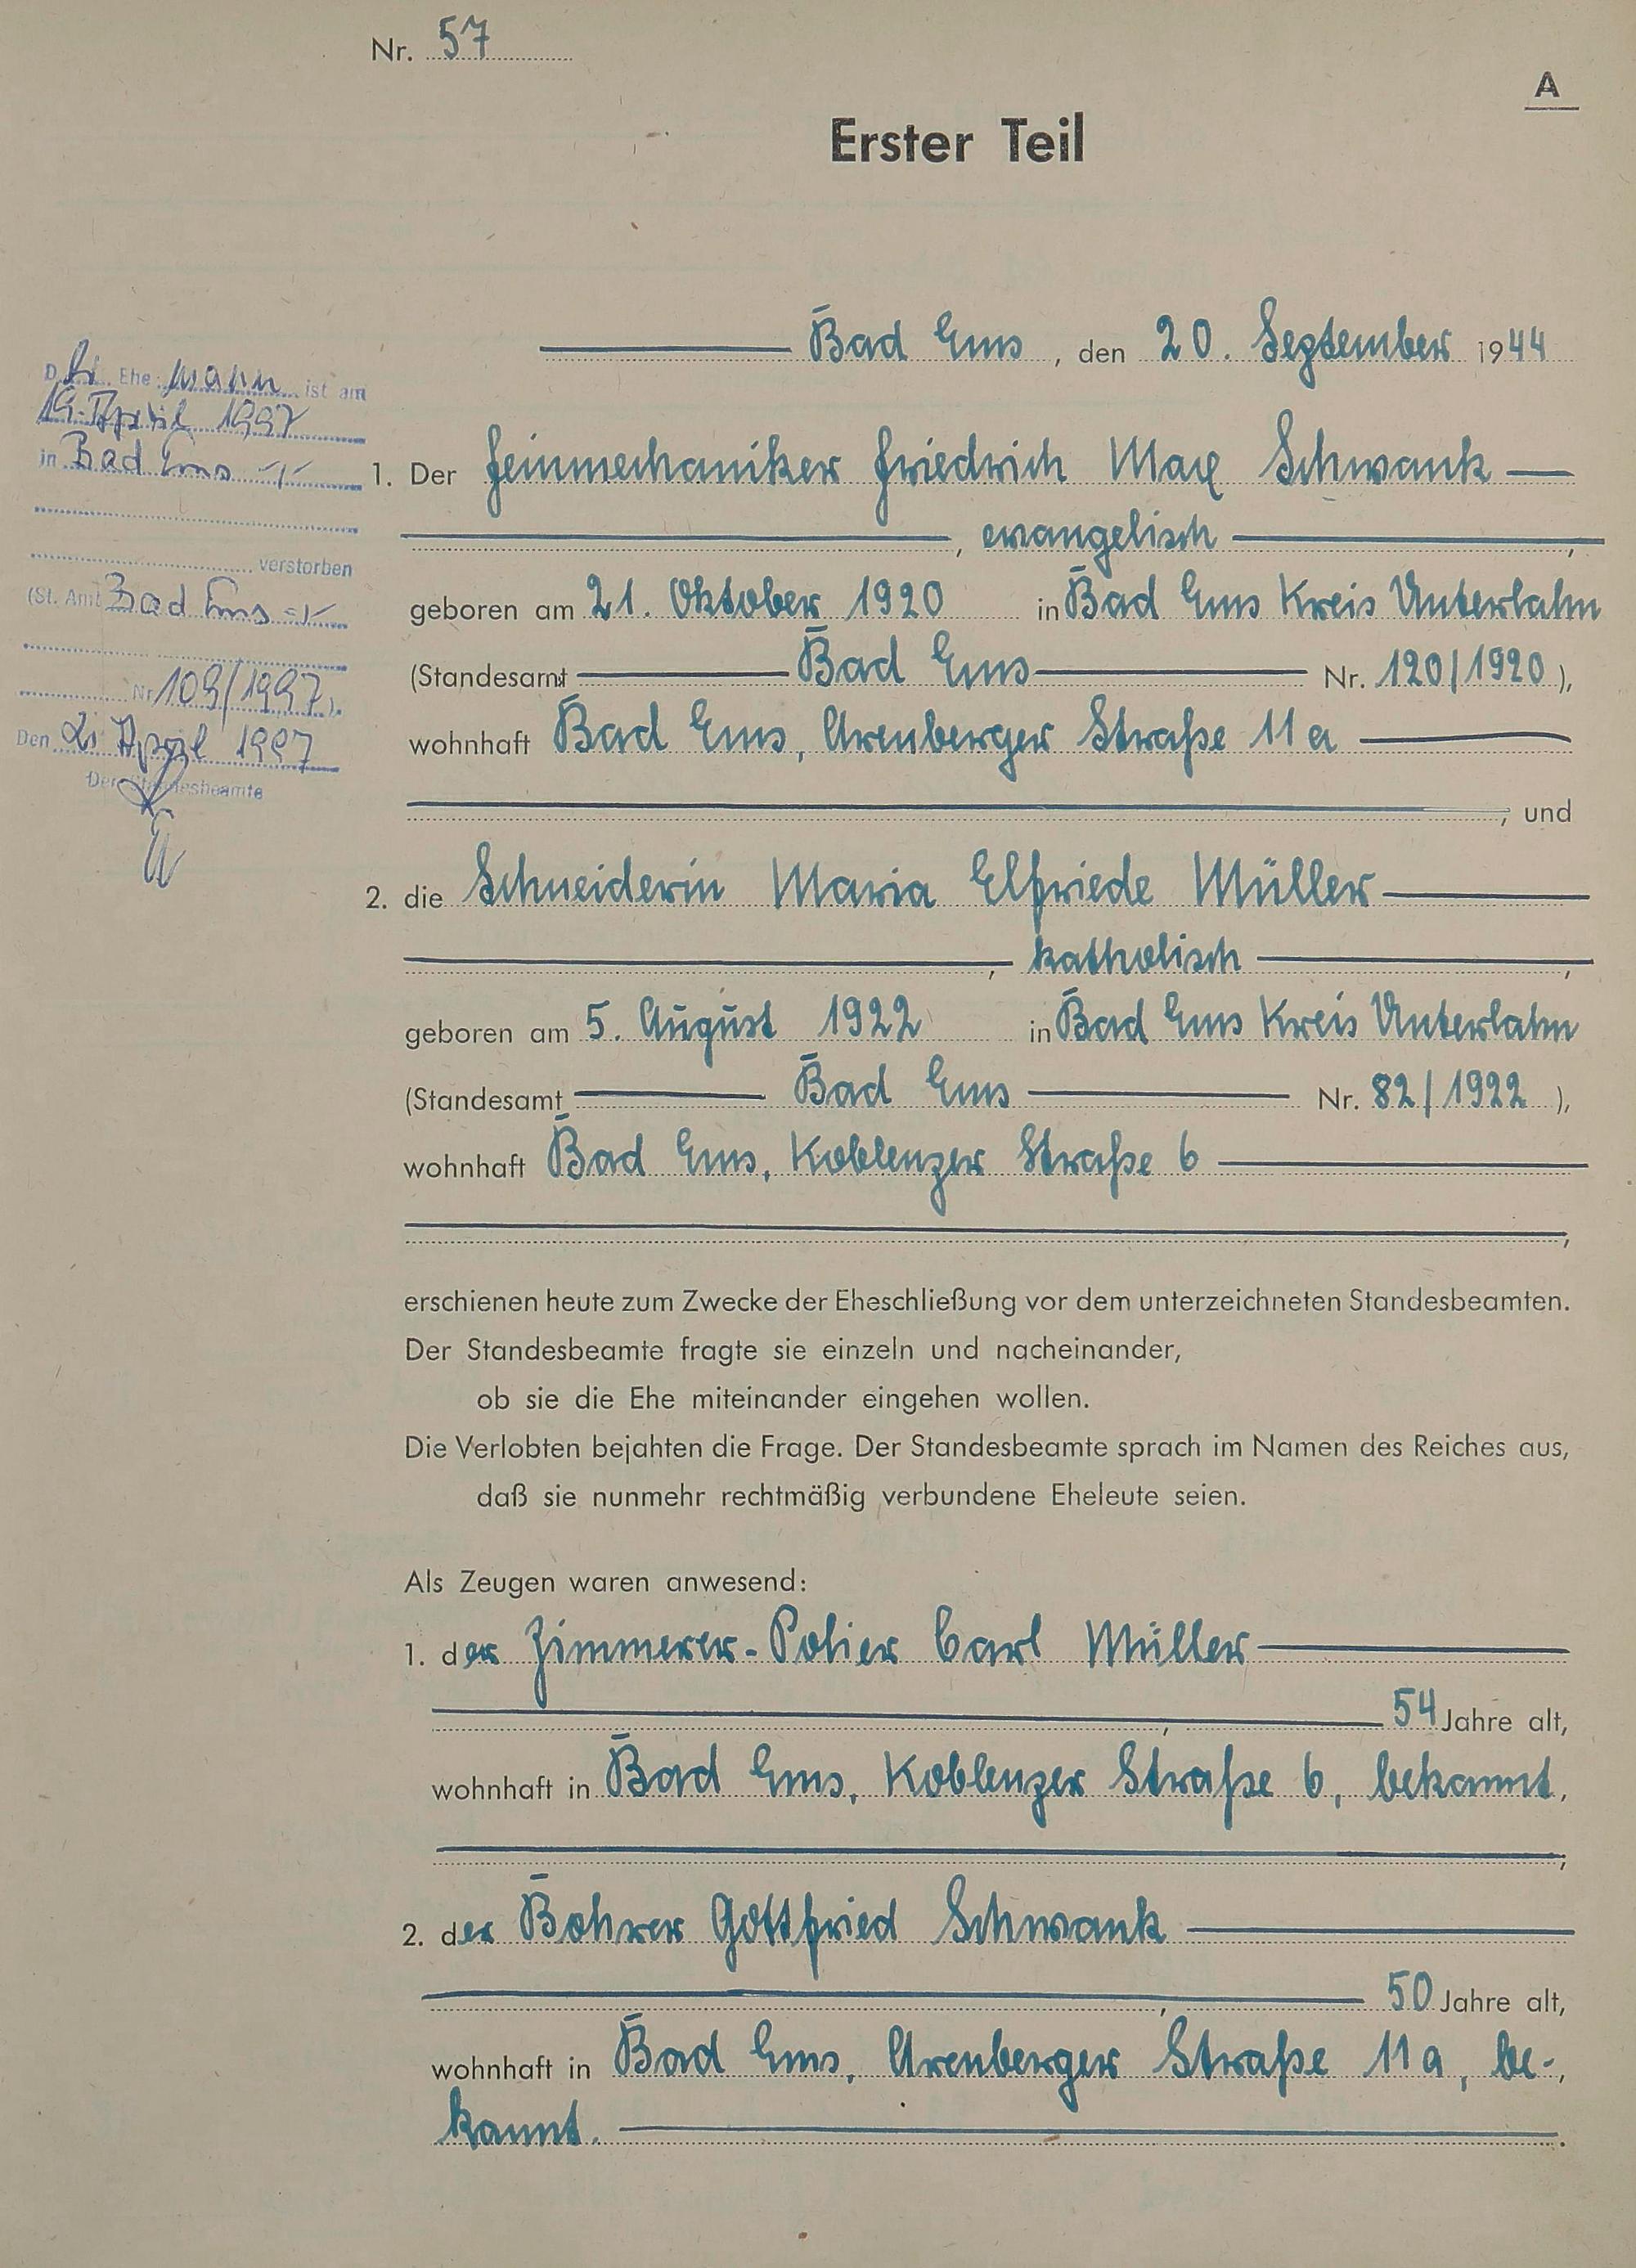 Nr. 57
A
Erster Teil
Bad Ems, den 20. September 1944
Der Ehe mann ist am
19. April 1997
in Bad Ems
verstorben
(St. Amt Bad Ems
Nr 109/1997).
Den 21. April 1997
Der Standesbeamte
1. Der Feinmechaniker Friedrich Max Schwank
, evangelisch ,
geboren am 21. Oktober 1920 in Bad Ems Kreis Unterlahn
(Standesamt Bad Ems Nr. 120/1920),
wohnhaft Bad Ems, Arenberger Straße 11a
, und
2. die Schneiderin Maria Elfriede Müller
, katholisch ,
geboren am 5. August 1922 in Bad Ems Kreis Unterlahn
(Standesamt Bad Ems Nr. 82/1922),
wohnhaft Bad Ems, Koblenzer Straße 6
,
erschienen heute zum Zwecke der Eheschließung vor dem unterzeichneten Standesbeamten.
Der Standesbeamte fragte sie einzeln und nacheinander,
ob sie die Ehe miteinander eingehen wollen.
Die Verlobten bejahten die Frage. Der Standesbeamte sprach im Namen des Reiches aus,
daß sie nunmehr rechtmäßig verbundene Eheleute seien.
Als Zeugen waren anwesend:
1. der Zimmerer-Polier Carl Müller
, 54 Jahre alt,
wohnhaft in Bad Ems, Koblenzer Straße 6, bekannt,
;
2. der Bohrer Gottfried Schwank
, 50 Jahre alt,
wohnhaft in Bad Ems, Arenberger Straße 11a, be-,
kannt. .